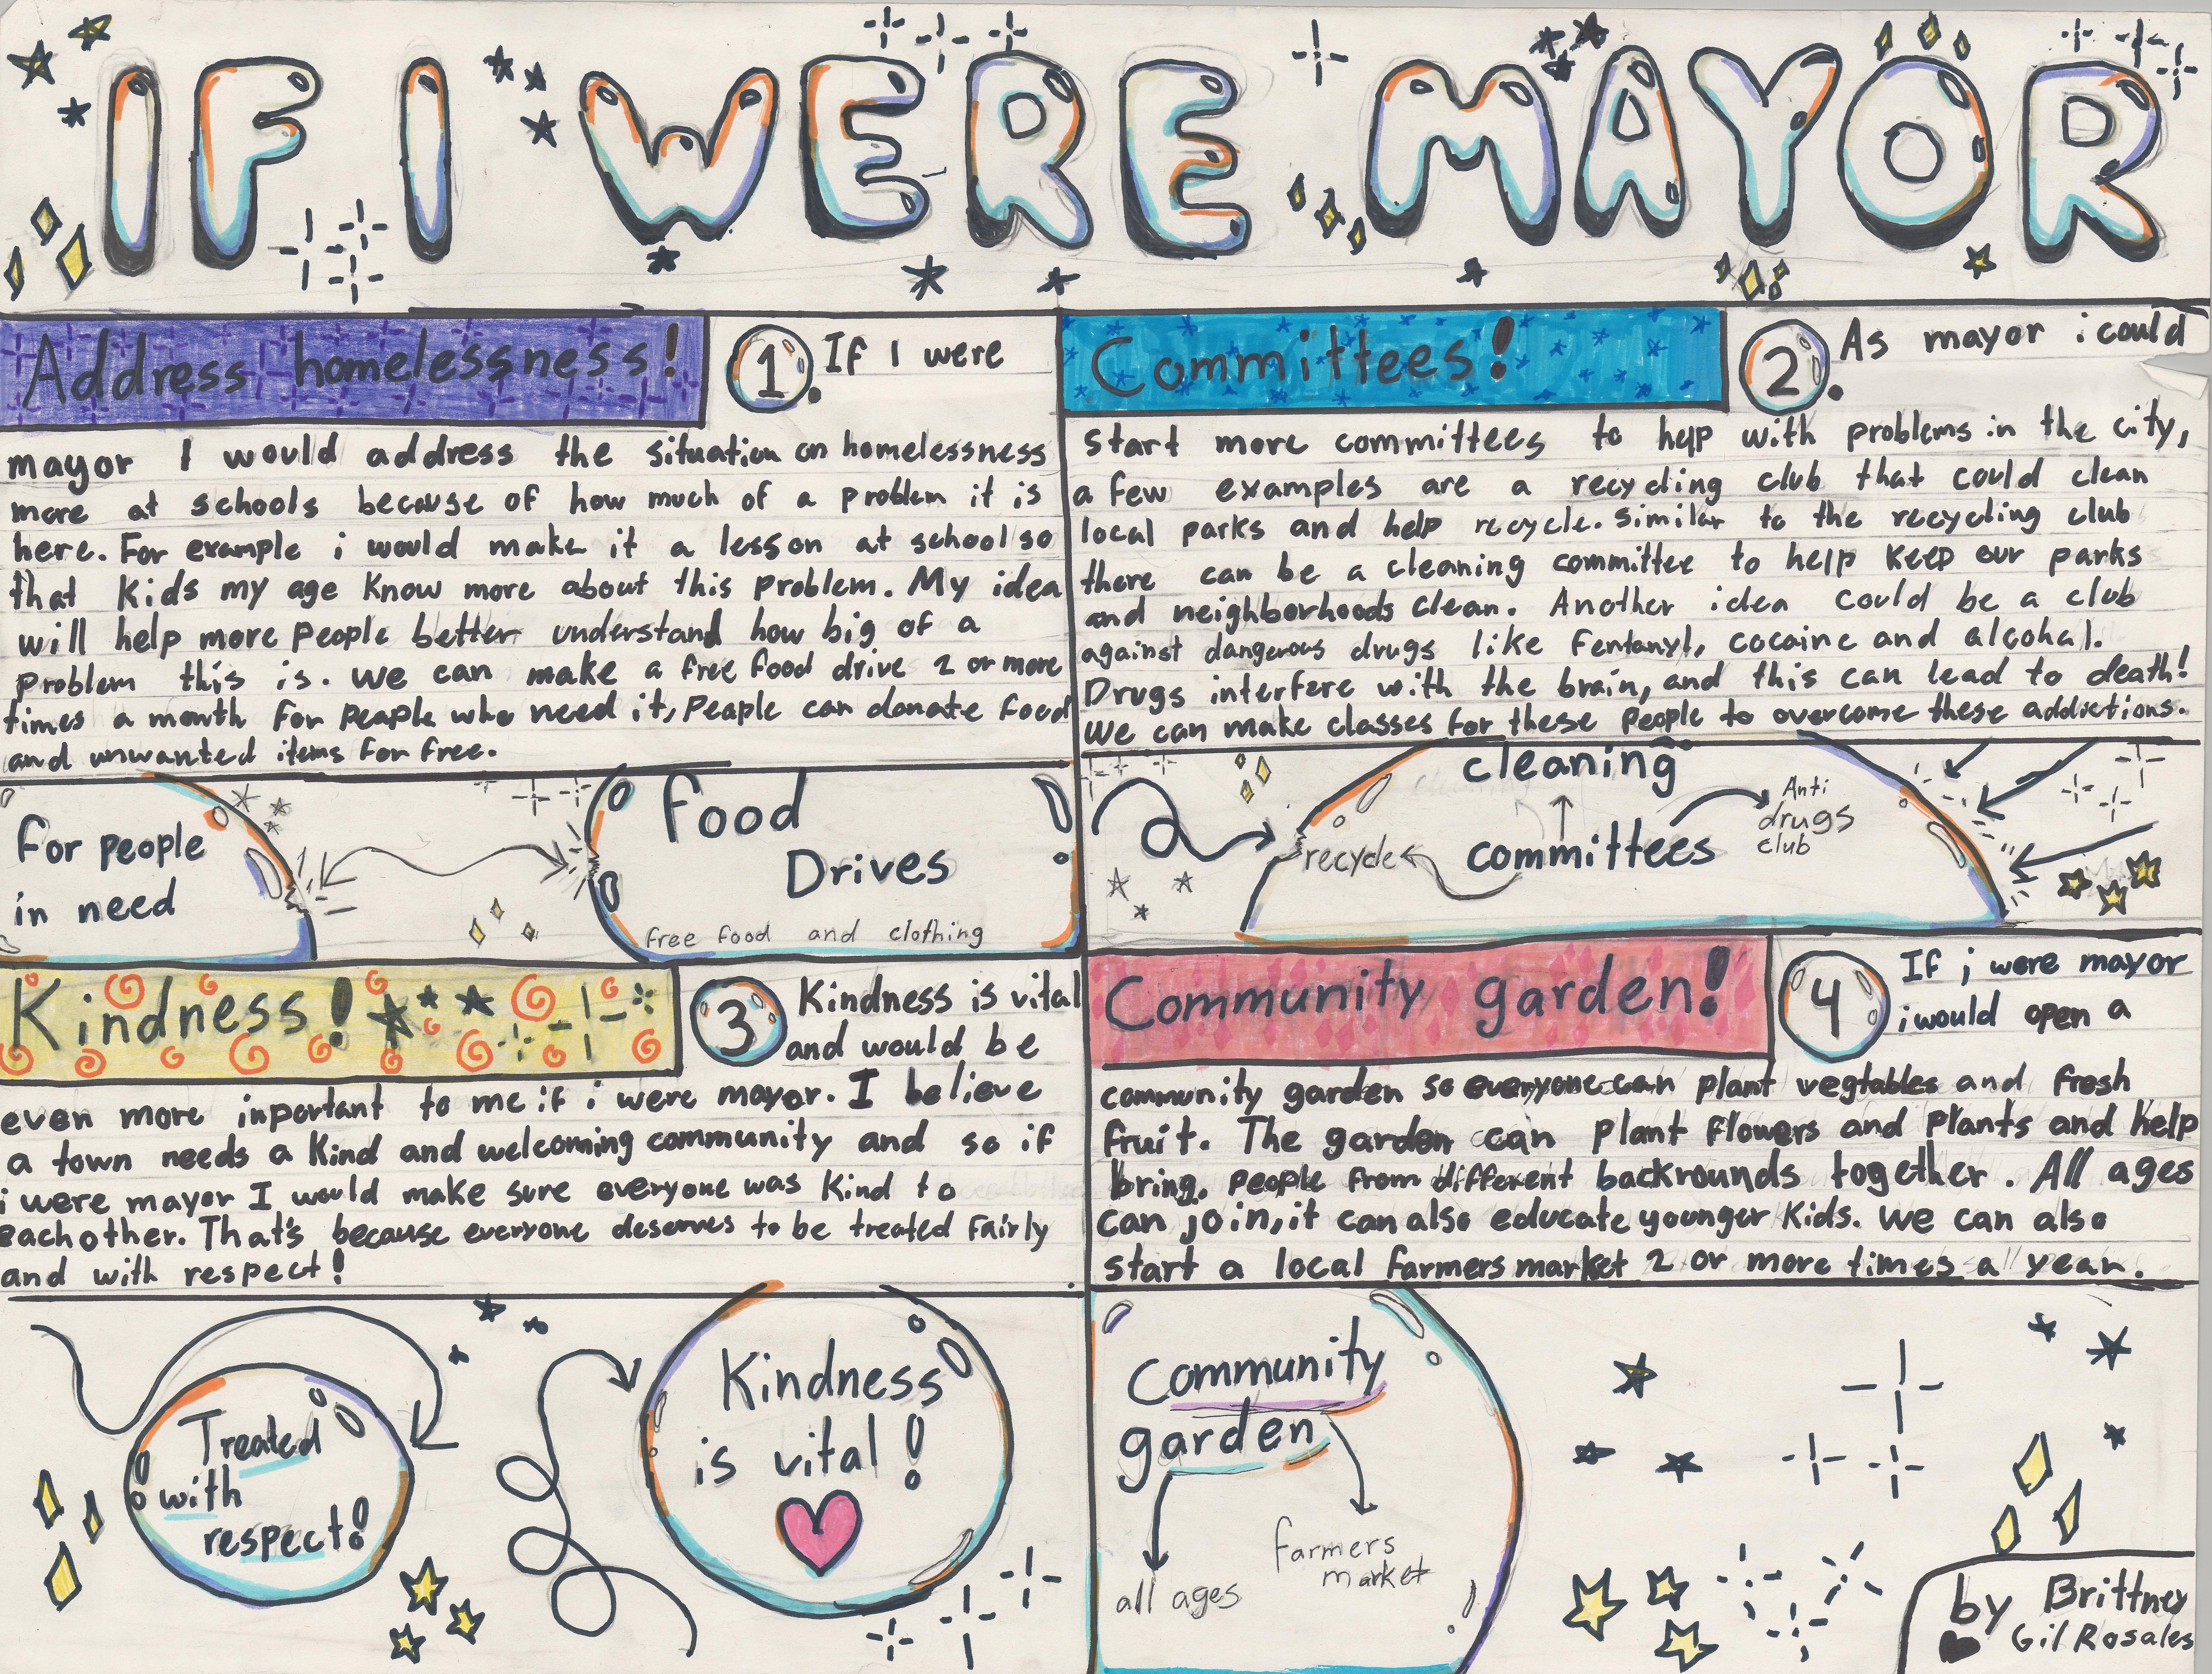 IF I WERE MAYOR
Address homelessness!
1. If I were
mayor I would address the situation on homelessness
more at schools because of how much of a problem it is
here. For example i would make it a lesson at school so
that Kids my age Know more about this problem. My idea
will help more people better understand how big of a
problem this is. we can make a free food drive 2 or more
times a month for people who need it, People can donate food
and unwanted items for free.
for people
in need
Food
Drives
free food and clothing
Committees!
2. As mayor i could
start more committees to help with problems in the city,
a few examples are a recycling club that could clean
local parks and help recycle. similar to the recycling club
there can be a cleaning committee to help keep our parks
and neighborhoods clean. Another idea could be a club
against dangerous drugs like Fentanyl, cocaine and alcohal.
Drugs interfere with the brain, and this can lead to death!
We can make classes for these people to overcome these addictions.
cleaning
Anti
drugs
club
recycle
committees
Kindness!
3 Kindness is vital
and would be
even more inportant to me if i were mayor. I believe
a town needs a Kind and welcoming community and so if
i were mayor I would make sure everyone was Kind to
eachother. That's because everyone deserves to be treated Fairly
and with respect!
Treated
with
respect!
Kindness
is vital!
Community garden!
4 If i were mayor
i would open a
community garden so everyone can plant vegtables and fresh
fruit. The garden can plant flowers and plants and help
bring people from different backrounds together. All ages
can join, it can also educate younger Kids. we can also
start a local farmers market 2 or more times a year.
Community
garden
farmers
market
all ages
by Brittney
Gil Rosales